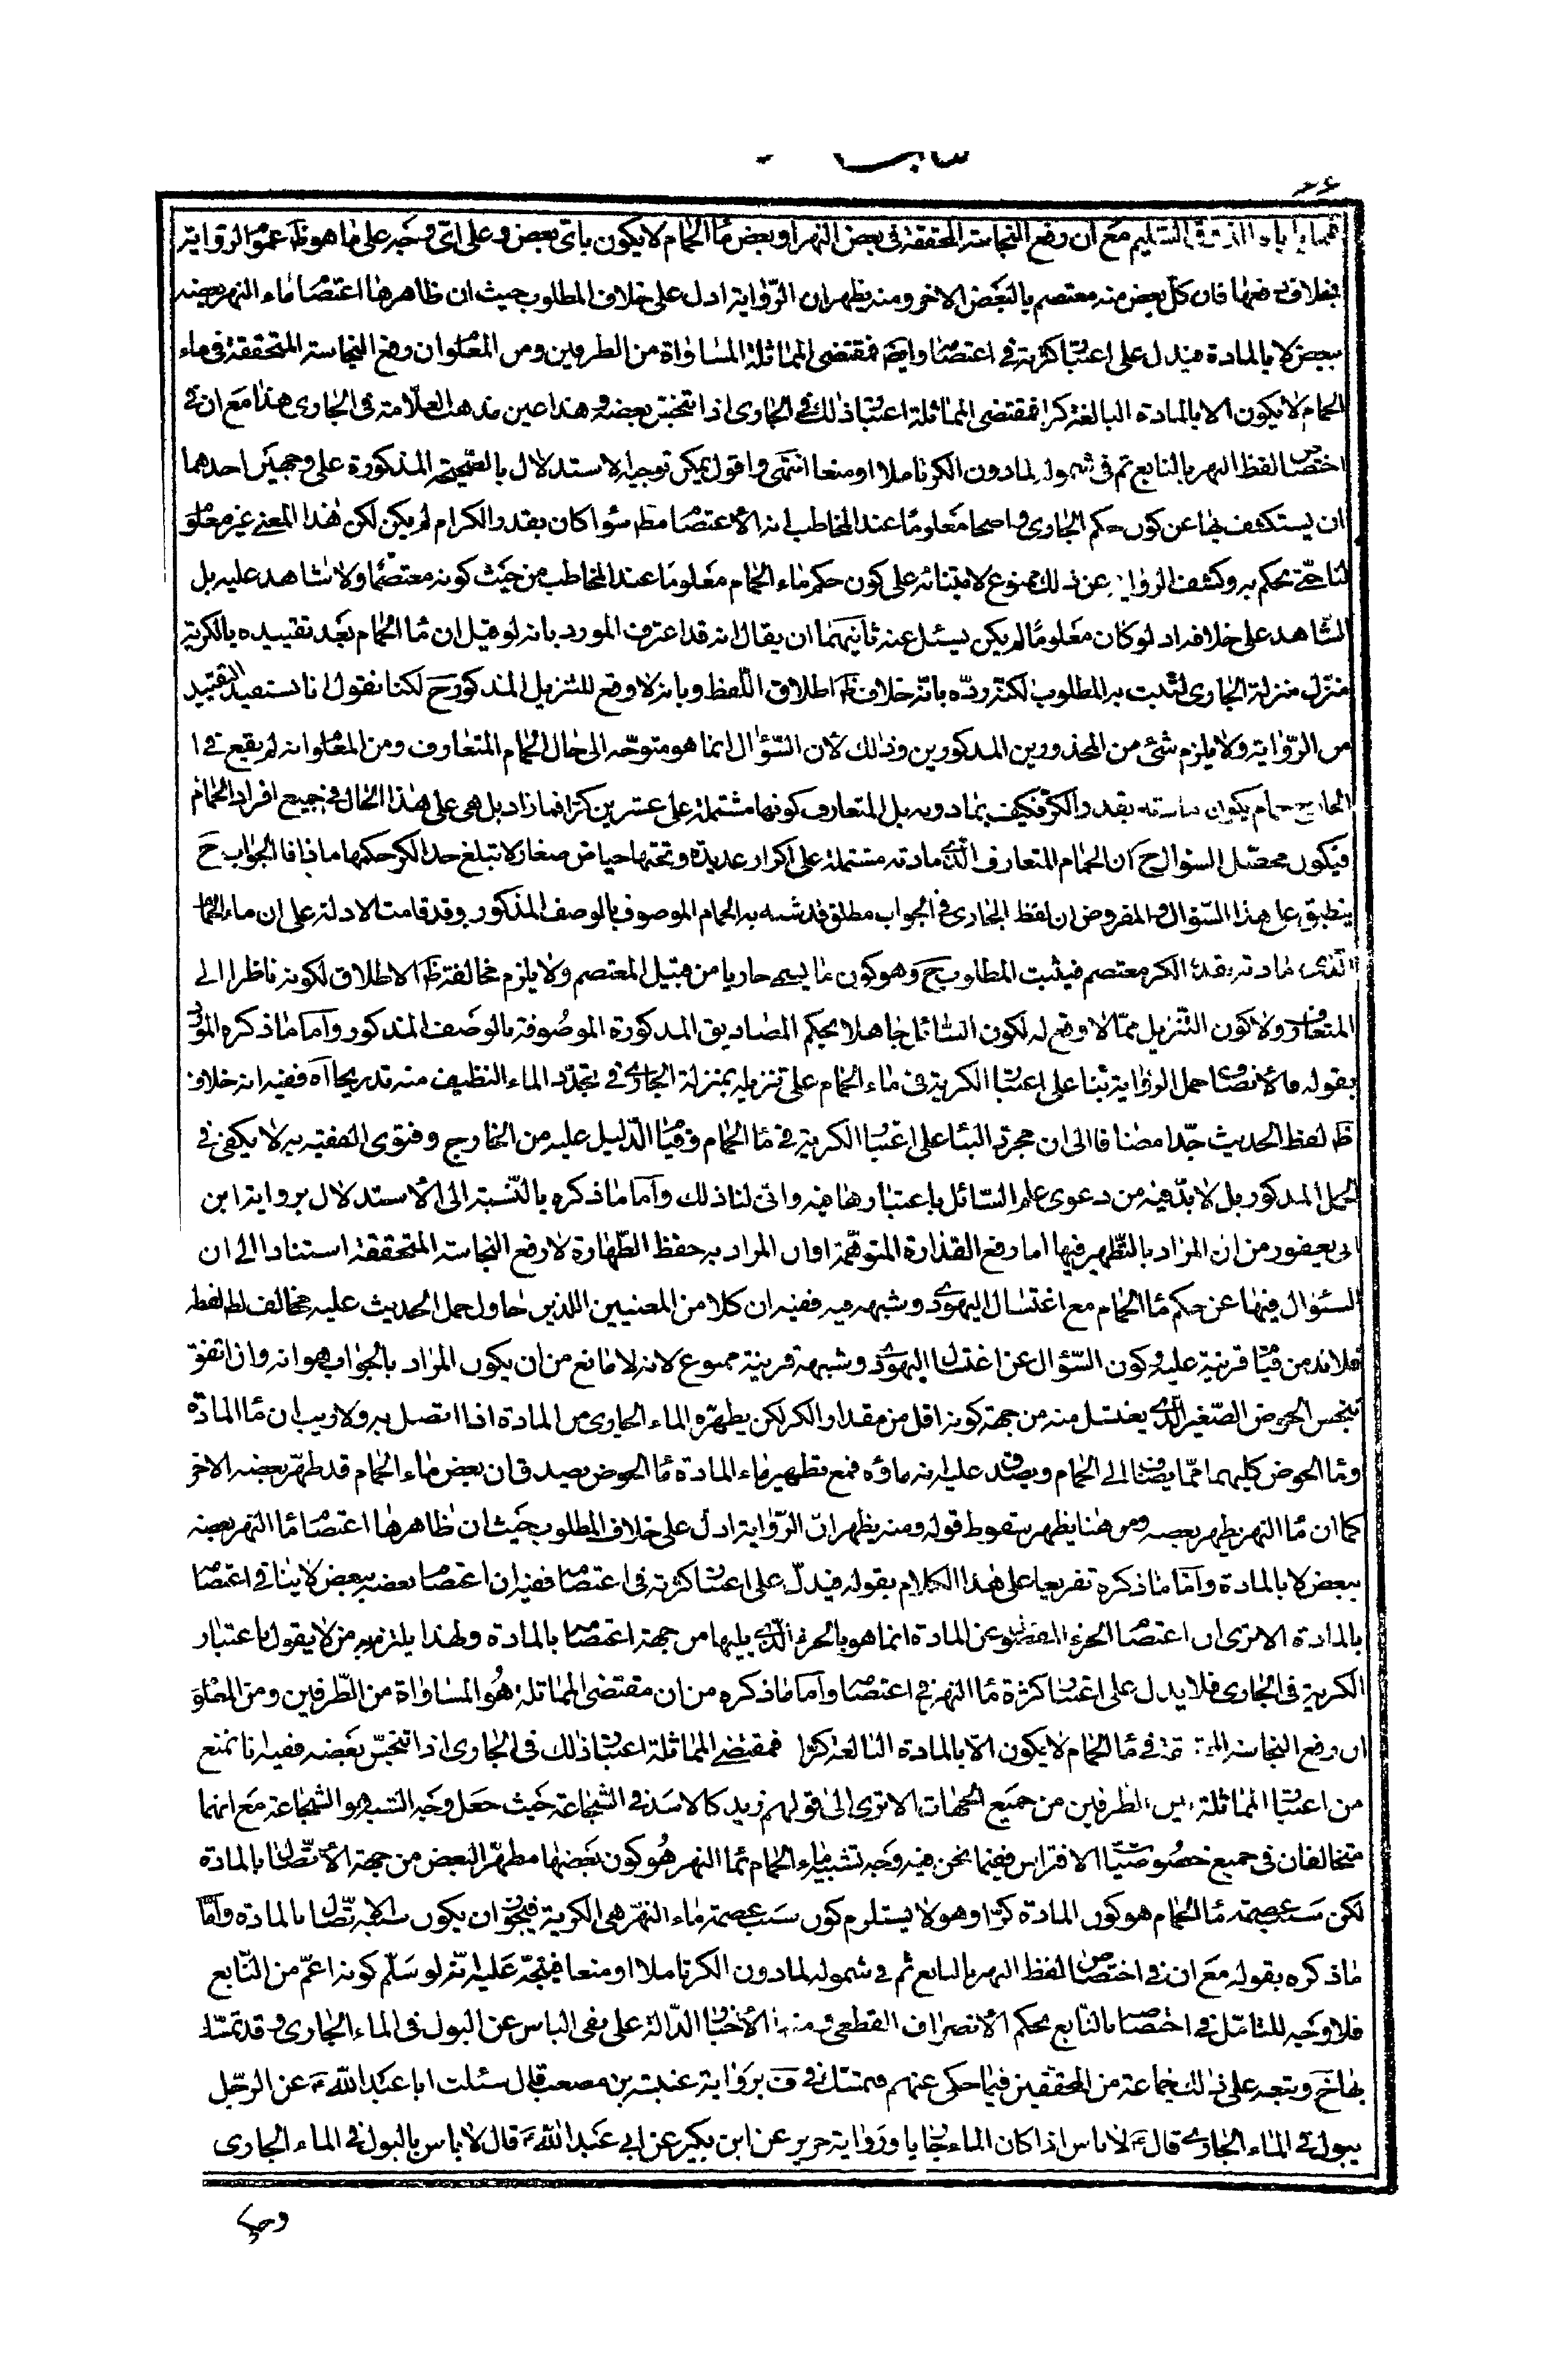 مع ان رفع النجاسة المحققة فى بعض النهر او بعض ماء الحمام لا يكون باى بعض وعلى اى وجه على ما هو ظ عموم الرواية
بخلاف دفعها فان كل بعض منه معتصم بالبعض الاخر ومنه يظهر ان الرواية ادل على خلاف المطلوب حيث ان ظاهرها اعتصام ماء النهر بعضه
ببعض لا بالمادة فيدل على اعتبار كثرته فى اعتصامه وايضا فمقتضى المماثلة المساواة من الطرفين ومن المعلوم ان رفع النجاسة المتحققة فى ماء
الحمام لا يكون الا بالمادة البالغة كرا فمقتضى المماثلة اعتبار ذلك فى الجارى اذا تنجس بعضه وهذا عين مذهب العلامة فى الجارى هذا مع ان فى
اختصاص لفظ النهر بالنابع ثم فى شموله لمادون الكر تاملا او منعا انتهى واقول يمكن توجيه الاستدلال بالصحيحة المذكورة على وجهين احدهما
ان يستكشف بها عن كون حكم الجارى واضحا معلوما عند المخاطب انه الاعتصام مط سواء كان بقدر الكر ام لم يكن لكن هذا المعنى غير معلوم
لنا حتى نحكم به وكشف الرواية عن ذلك ممنوع لابتنائه على كون حكم ماء الحمام معلوما عند المخاطب من حيث كونه معتصما ولا شاهد عليه بل
الشاهد على خلافه اذ لو كان معلوما لم يكن يسئل عنه ثانيهما ان يقال انه قد اعترف المورد بانه لو قيل ان ماء الحمام بعد تقييده بالكرية
منزل منزلة الجارى لثبت به المطلوب لكنه رده بانه خلاف ظ اطلاق اللفظ وبانه لا وقع للتنزيل المذكور ح لكنا نقول انا نستفيد التقييد
من الرواية ولا يلزم شئ من المحذورين المذكورين وذلك لان السؤال انما هو متوجه الى حال الحمام المتعارف ومن المعلوم انه لم يقع فى
الخارج حمام يكون مادته بقدر الكر فكيف بما دونه بل المتعارف كونها مشتملة على عشرين كرا فما زاد بل هى على هذا الحال فى جميع افراد الحمام
فيكون محصل السؤال ح ان الحمام المتعارف الذى مادته مشتملة على اكرار عديدة وتحتها حياض صغار لا تبلغ حد الكر حكمها ماذا فالجواب ح
ينطبق على هذا السؤال والمفروض ان لفظ الجارى فى الجواب مطلق قد شبه به الحمام الموصوف بالوصف المذكور وقد قامت الادلة على ان ماء الحمام
الذى مادته بقدر الكر معتصم فيثبت المطلوب ح وهو كون ما يسمى جاريا من قبيل المعتصم ولا يلزم مخالفة ظ الاطلاق لكونه ناظرا الى
المتعارف ولا كون التنزيل مما لا وقع له لكون السائل جاهلا بحكم المصاديق المذكورة الموصوفة بالوصف المذكور واما ما ذكره المورد
بقوله فالانصاف حمل الرواية بناء على اعتبار الكرية فى ماء الحمام على تنزيله بمنزلة الجارى فى تجدد الماء النظيف منه تدريجا اه ففيه انه خلاف
ظ لفظ الحديث جدا مضافا الى ان مجرد البناء على اعتبار الكرية فى ماء الحمام وقيام الدليل عليه من الخارج وفتوى الفقيه به لا يكفى فى
الحمل المذكور بل لابد فيه من دعوى علم السائل باعتبارها فيه وانى لنا ذلك واما ما ذكره بالنسبة الى الاستدلال برواية ابن
ابى يعفور من ان المراد بالتطهير فيها اما رفع القذارة المتوهمة او ان المراد به حفظ الطهارة لا رفع النجاسة المتحققة استنادا الى ان
السئوال فيها عن حكم ماء الحمام مع اغتسال اليهودى وشبهه فيه ففيه ان كلا من المعنيين اللذين حاول حمل الحديث عليه مخالف لظ لفظه
فلابد من قيام قرينة عليه وكون السؤال عن اغتسال اليهودى وشبهه قرينة ممنوع لانه لا مانع من ان يكون المراد بالجواب هو انه وان اتفق
تنجس الحوض الصغير الذى يغتسل منه من جهة كونه اقل من مقدار الكر لكن يطهره الماء الجارى من المادة اذا اتصل به ولا ريب ان ماء المادة
وماء الحوض كليهما مما يضاف الى الحمام ويصدق عليه انه ماؤه فمع تطهير ماء المادة ماء الحوض يصدق ان بعض ماء الحمام قد طهر بعضه الاخر
كما ان ماء النهر يطهر بعضه ومن هنا يظهر سقوط قوله ومنه يظهر ان الرواية ادل على خلاف المطلوب حيث ان ظاهرها اعتصام ماء النهر بعضه
ببعض لا بالمادة واما ما ذكره تفريعا على هذا الكلام بقوله فيدل على اعتبار كثرته فى اعتصامه ففيه ان اعتصام بعضه ببعض لا ينافى اعتصامه
بالمادة الا ترى ان اعتصام الجزء المفصول عن المادة انما هو بالجزء الذى يليها من جهة اعتصامه بالمادة ولهذا يلتزم به من لا يقول باعتبار
الكرية فى الجارى فلا يدل على اعتبار كثرة ماء النهر فى اعتصامه واما ما ذكره من ان مقتضى المماثلة هو المساواة من الطرفين ومن المعلوم
ان رفع النجاسة فى ماء الحمام لا يكون الا بالمادة البالغة كرا فمقتضى المماثلة اعتبار ذلك فى الجارى اذا تنجس بعضه ففيه انا نمنع
من اعتبار المماثلة بين الطرفين من جميع الجهات الا ترى الى قولهم زيد كالاسد فى الشجاعة حيث جعل وجه الشبه هو الشجاعة مع انهما
متخالفان فى جميع خصوصيات الافتراس ففيما نحن فيه وجه تشبيه ماء الحمام بماء النهر هو كون بعضها مطهر البعض من جهة الاتصال بالمادة
لكن سبب عصمة ماء الحمام هو كون المادة كرا وهو لا يستلزم كون سبب عصمة ماء النهر هى الكرية فيجوز ان يكون سببه الاتصال بالمادة واما
ما ذكره بقوله مع ان فى اختصاص لفظ النهر بالنابع ثم فى شموله لمادون الكر تاملا او منعا فيتجه عليه انه لو سلم كونه اعم من النابع
فلا وجه للتامل فى اختصاصه بالنابع بحكم الانصراف القطعى ومنها الاخبار الدالة على نفى الباس عن البول فى الماء الجارى وقد تمسك
بها فى ويتجه على ذلك جماعة من المحققين فيما حكى عنهم فتمسك فى ف برواية عنبسة بن مصعب قال سئلت ابا عبد الله ع عن الرجل
يبول فى الماء الجارى قال ع لا باس اذا كان الماء جاريا ورواية حريز عن ابن بكير عن ابى عبد الله ع قال لا باس بالبول فى الماء الجارى